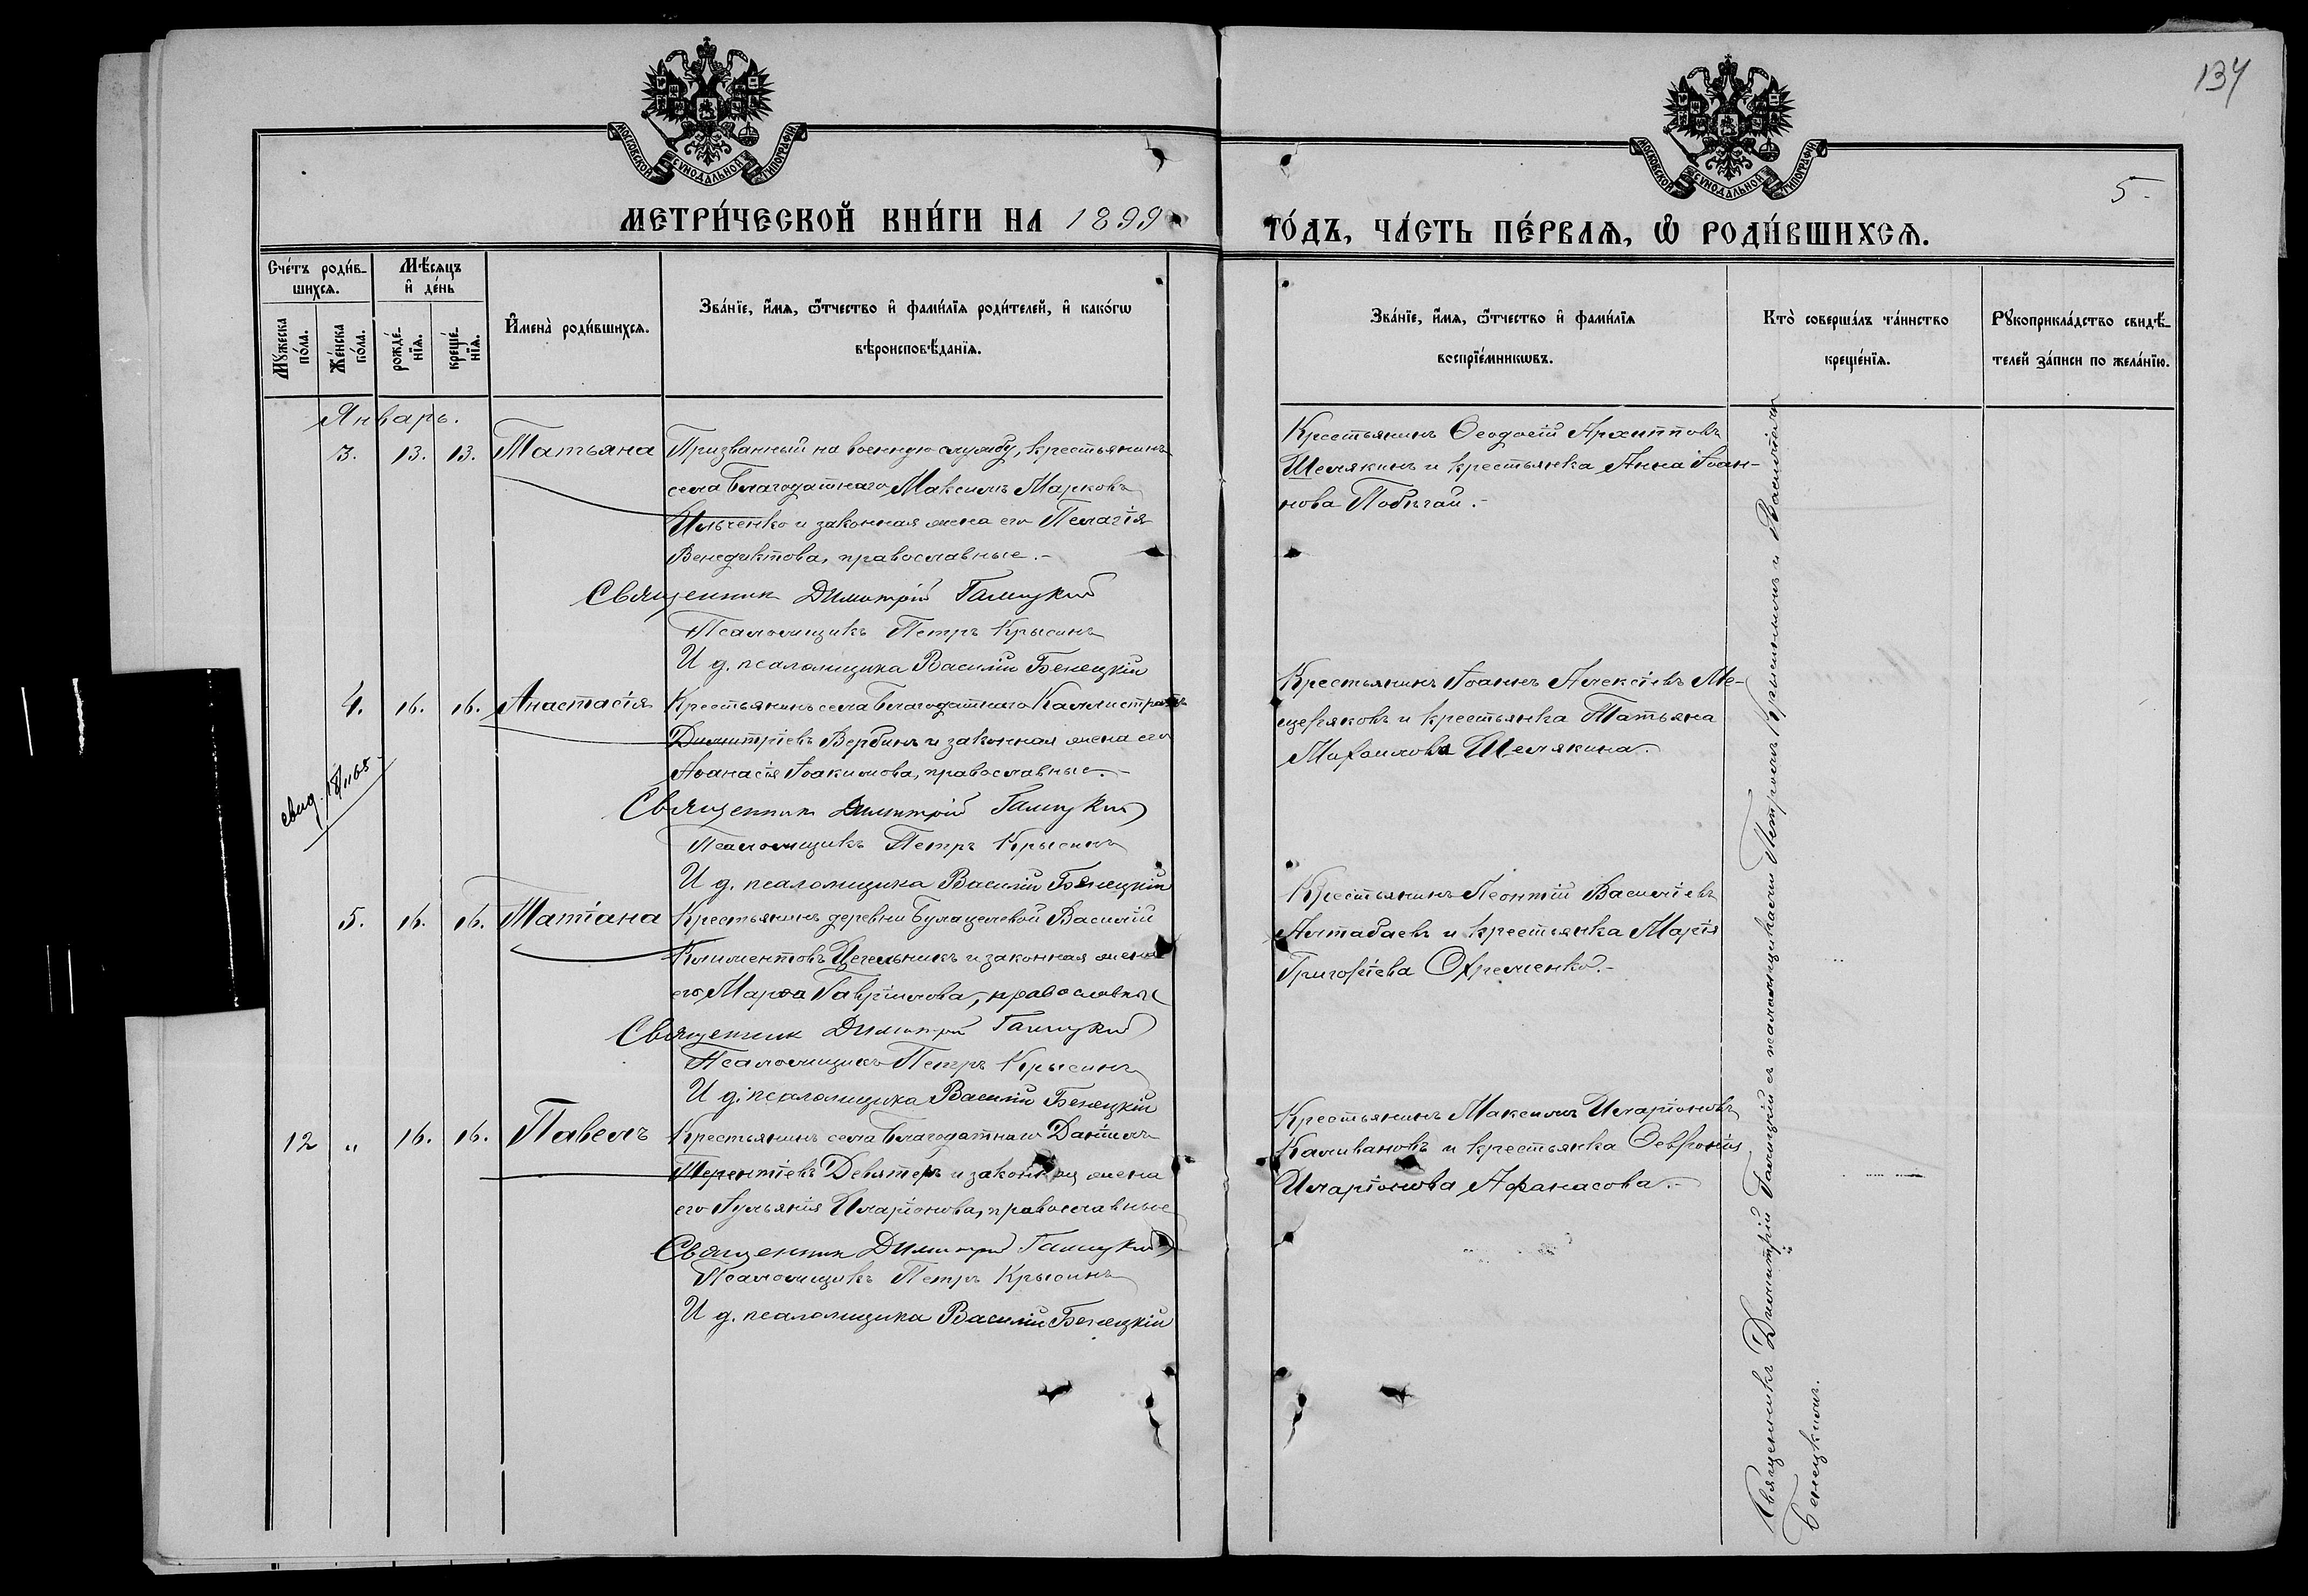 134
МОСКОВСКОЙ СѴНОДАЛЬНОЙ ТИПОГРАФІИ
МОСКОВСКОЙ СѴНОДАЛЬНОЙ ТИПОГРАФІИ
5.
МЕТРИ́ЧЕСКОЙ КНИ́ГИ НА 1899 ГО́ДЪ, ЧА́СТЬ ПЕ́РВАѦ, Ѡ҆ РОДИ́ВШИХСѦ.
Сче́тъ роди́в-
шихсѧ.
Мꙋ́жеска по́ла.
Же́нска по́ла.
Мѣ́сѧцъ и҆ де́нь
рожде́-нїѧ.
креще́-нїѧ.
И҆мена̀ роди́вшихсѧ.
Зва́нїе, и҆́мѧ, ѻ҆́тчество и҆ фами́лїѧ роди́телей, и҆ како́гѡ
вѣроисповѣ́данїѧ.
Зва́нїе, и҆́мѧ, ѻ҆́тчество и҆ фами́лїѧ
воспрїе́мникѡвъ.
Кто̀ соверша́лъ та́инство
креще́нїѧ.
Рꙋкоприкла́дство свидѣ́-
телей за́писи по жела́нїю.
Январь.
3. 13. 13. Татьяна Призванный на военную службу, крестьянинъ
села Благодатнаго Максимъ Марковъ
Ильченко и законная жена его Пелагія
Венедиктова, православные.-
Священникъ Димитрій Галицкій
Псаломщикъ Петръ Крысинъ
И д. псаломщика Василій Бенецкій
Крестьянинъ Ѳеодосій Архипповъ
Шелякинъ и крестьянка Анна Іоан-
нова Побѣгай.-
4. 16. 16. Анастасія Крестьянинъ села Благодатнаго Каллистратъ
Димитріевъ Вербинъ и законная жена его
Аѳанасія Іоакимова, православные.-
Священникъ Димитрій Галицкій
Псаломщикъ Петръ Крысинъ
И д. псаломщика Василій Бенецкій
свид.
Крестьянинъ Іоаннъ Алексіевъ Ме-
щеряковъ и крестьянка Татьяна
Михаилова Шелякина.-
5. 16. 16. Татіана Крестьянинъ деревни Булацеловой Василій
Климентовъ Цегельникъ и законная жена
его Марѳа Гавріилова, православные
Священник Димитрій Галицкій
Псаломщикъ Петръ Крысинъ
И д. псаломщика Василій Бенецкій
Крестьянинъ Леонтій Василіевъ
Алтабаевъ и крестьянка Марія
Григоріева Охременко.-
12 " 16. 16. Павелъ Крестьянинъ села Благодатнаго Даніилъ
Терентіевъ Девятеръ и законная жена
его Іульянія Иларіонова, православные
Священник Димитрій Галицкій
Псаломщикъ Петръ Крысинъ
И д. псаломщика Василій Бенецкій
Крестьянинъ Максимъ Иларіоновъ
Каливановъ и крестьянка Ѳевронія
Иларіонова Афанасова.-
Священникъ Димитрій Галицкій съ псаломщиками Петромъ Крысинымъ и Василіемъ
Бенецкимъ.